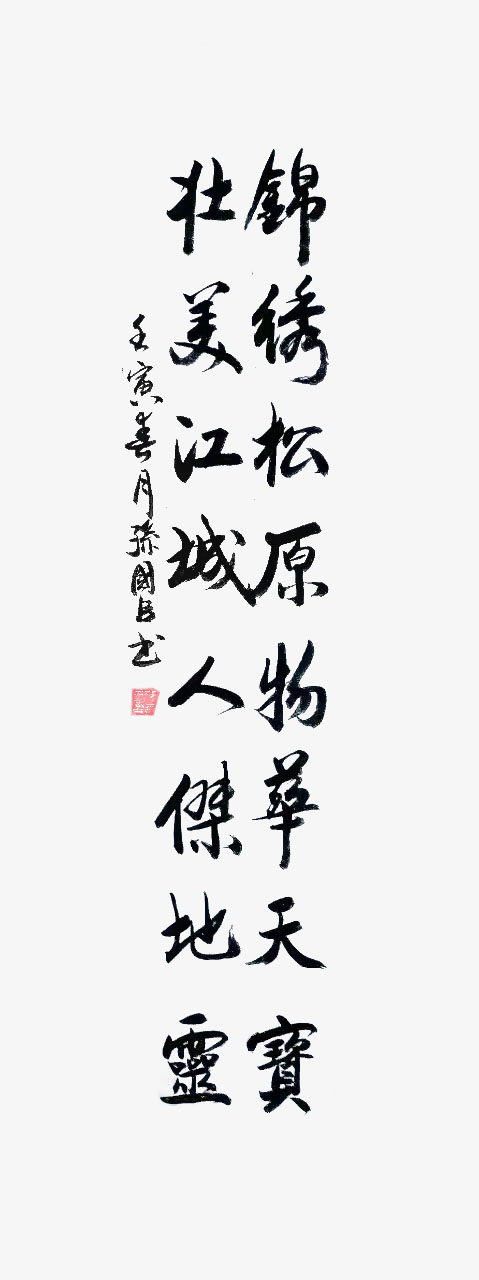 錦綉松原物華天寶
壯美江城人傑地靈
壬寅春月孫國占书